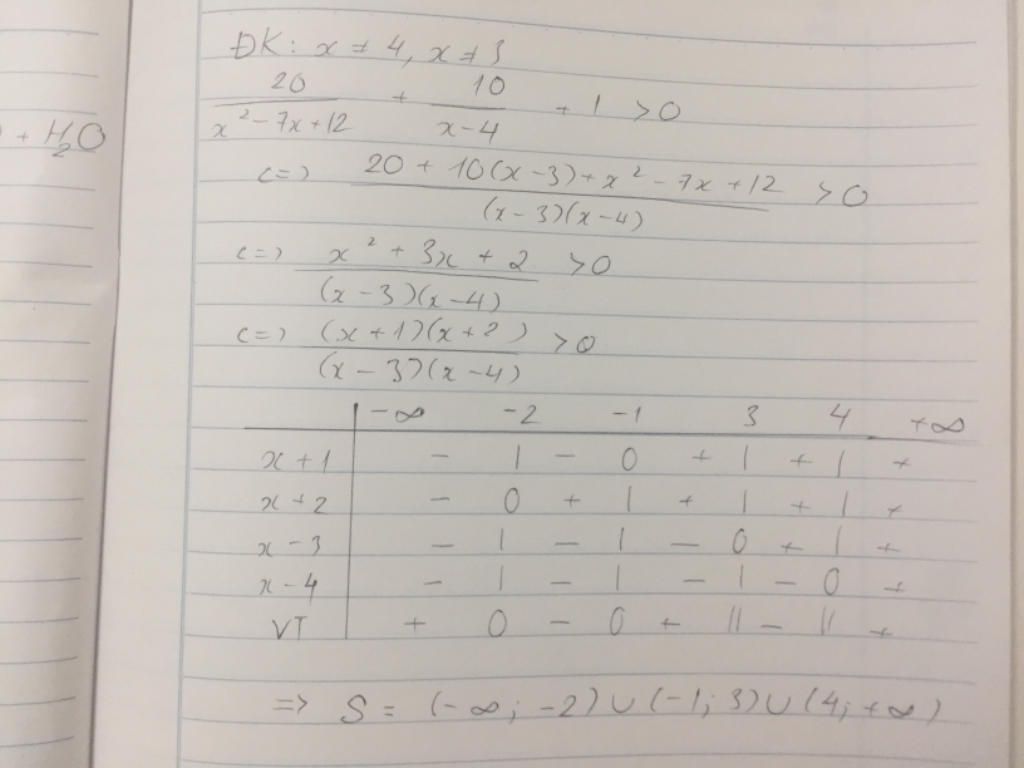 + H₂O
ĐK: x ≠ 4, x ≠ 3
20/(x² - 7x + 12) + 10/(x - 4) + 1 > 0
<=> (20 + 10(x - 3) + x² - 7x + 12)/((x - 3)(x - 4)) > 0
<=> (x² + 3x + 2)/((x - 3)(x - 4)) > 0
<=> ((x + 1)(x + 2))/((x - 3)(x - 4)) > 0
-∞ -2 -1 3 4 +∞
x + 1 - | - 0 + | + | +
x + 2 - 0 + | + | + | +
x - 3 - | - | - 0 + | +
x - 4 - | - | - | - 0 +
VT + 0 - 0 + || - || +
=> S = (-∞; -2) ∪ (-1; 3) ∪ (4; +∞)